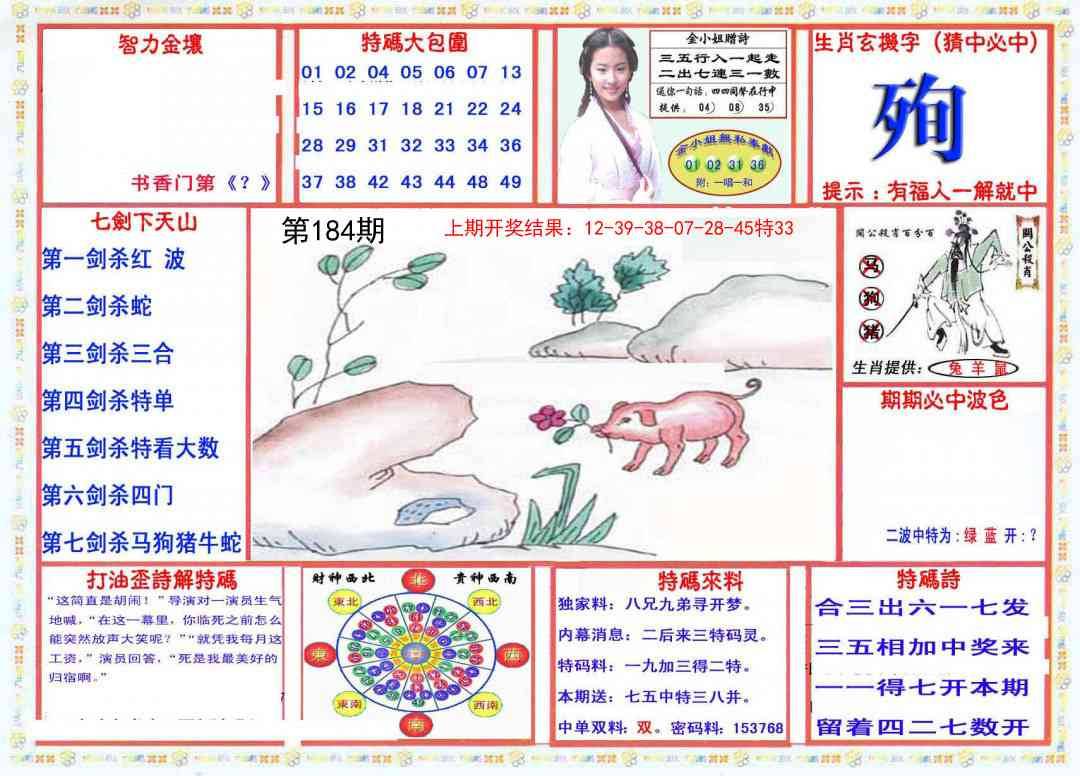 智力金壤
书香门第《？》
特碼大包圍
01 02 04 05 06 07 13
15 16 17 18 21 22 24
28 29 31 32 33 34 36
37 38 42 43 44 48 49
金小姐赠詩
三五行入一起走
二出七連三一數
送你一句话：四四同聲在行中
提供： 04） 08） 35）
金小姐無私奉獻
01 02 31 36
附：一唱一和
生肖玄機字（猜中必中）
殉
提示：有福人一解就中
七劍下天山
第一剑杀红 波
第二剑杀蛇
第三剑杀三合
第四剑杀特单
第五剑杀特看大数
第六剑杀四门
第七剑杀马狗猪牛蛇
第184期
上期开奖结果：12-39-38-07-28-45特33
關公殺肖百分百
關公殺肖
马
狗
猪
生肖提供：兔 羊 鼠
期期必中波色
二波中特为：绿 蓝 开：？
打油歪詩解特碼
“这简直是胡闹！”导演对一演员生气
地喊，“在这一幕里，你临死之前怎么
能突然放声大笑呢？”“就凭我每月这
工资，”演员回答，“死是我最美好的
归宿啊。”
財神西北
貴神西南
北
東北
西北
東
西
東南
西南
南
特碼來料
独家料：八兄九弟寻开梦。
内幕消息：二后来三特码灵。
特码料：一九加三得二特。
本期送：七五中特三八并。
中单双料：双。密码料：153768
特碼詩
合三出六一七发
三五相加中奖来
一一得七开本期
留着四二七数开